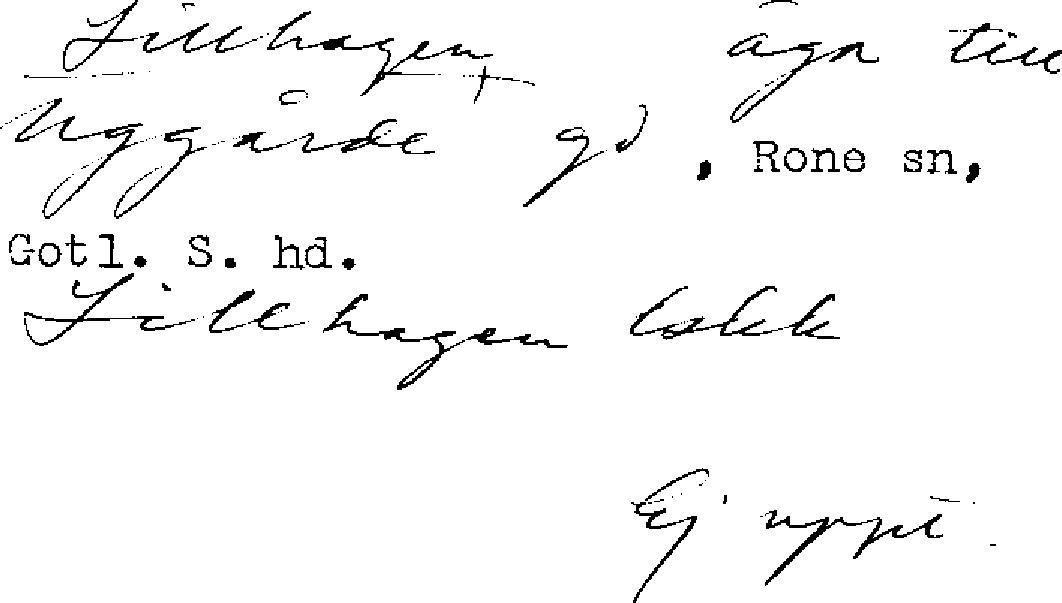 Lillhagen äga till
Uggårde gd, Rone sn,
Gotl. S. hd.
Lillhagen lokk
Ej uppt.